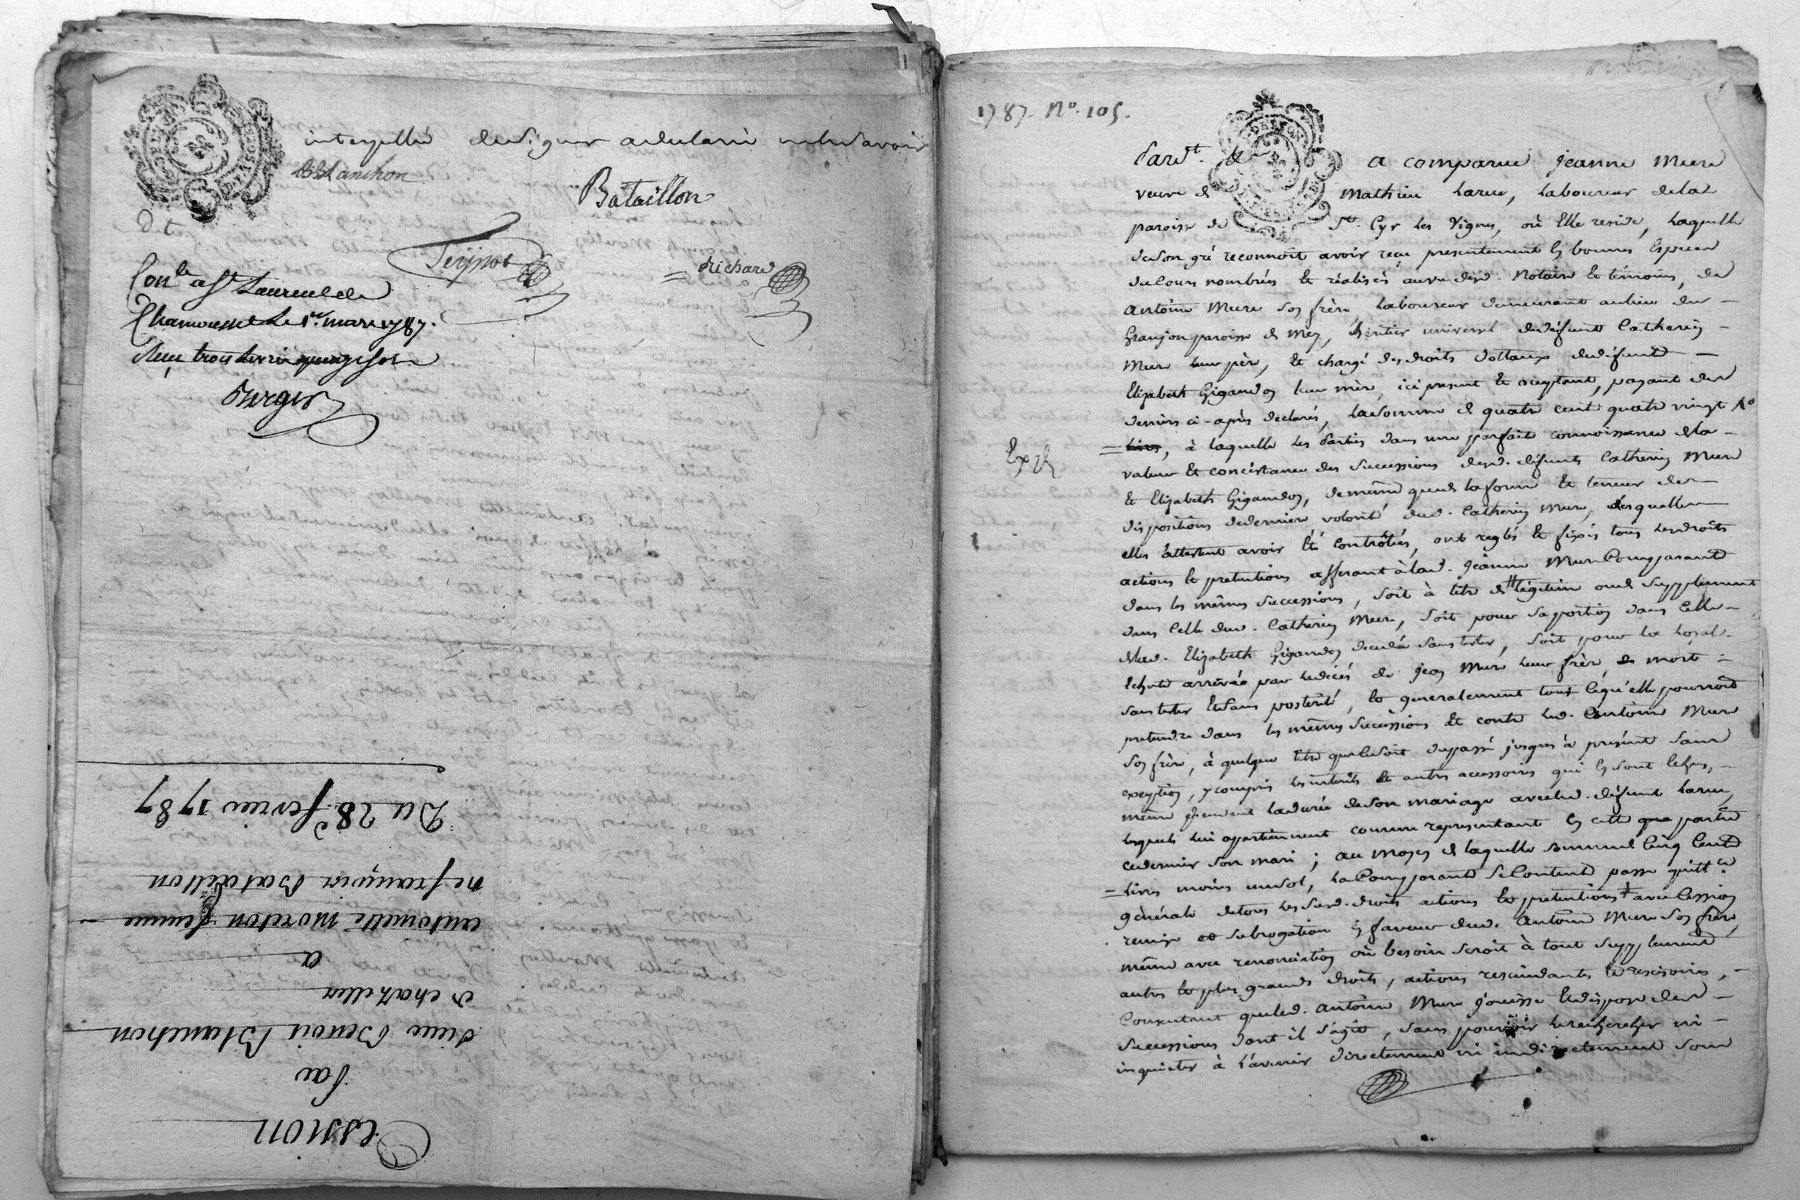 interpellé de signer a declaré ne le savoir
B Blanchon
Bataillon
d. t.
Teyssot
Richard
Con.lé a St Laurent de
Chamousset le 1er mars 1787.
Reçu trois livres quinze sols
Burgié
Du 28e fevrier 1787
ne françoise Bataillon
antoinette moreton femme
a
de chazelles
sieur Benoit Blanchon
Par
Cession
1787. No. 105.
Pardt. &c a comparue jeanne Mure
veuve de Mathieu Larue, Laboureur de la
paroisse de St. Cyr les Vignes, où Elle reside, Laquelle
de son gré reconnoit avoir reçu presentement En bonnes Especes
du Cours nombrées Et réalisées au vu desd. Notaire Et témoins, de
Antoine Mure son frère, Laboureur demeurant au lieu du
Granjon paroisse de Meys, héritier universel de defunt Catherin
Mure leur père, Et chargé des droits dottaux de défunte
Elizabeth Gigandon leur mère, ici present Et acceptant, payant des
deniers ci-après declarés, La somme de quatre cent quatre vingt No
livres, à laquelle Les Parties dans une parfaite connoissance de la
valeur Et concistance des Successions desd. défunts Catherin Mure
Et Elizabeth Gigandon, de même que de la forme Et teneur des
dispositions de derniere volonté dud. Catherin Mure, desquelles
elles attestent avoir Eté Contrôlées, ont reglés Et fixés tous Les droits
actions Et pretentions afferant à lad. Jeanne Mure Comparante
dans les mêmes Successions, Soit à titre de légitime ou de Supplement
dans Celle dud. Catherin Mure, Soit pour sa portion dans Celle
de lad. Elizabeth Gigandon decedée Sans tester, Soit pour la Locale
Echute arrivée par le decés de Jean Mure leur frère de mort
Sans tester Et sans posterité, Et generalement tout Ce qu'elle pourroit
pretendre dans les mêmes Successions Et contre led. Antoine Mure
Son frère, à quelque titre que Ce Soit du passé jusques à présent Sans
exception, y compris Les interets Et autres accessoires qui En sont Echus,
même pendent La durée de Son mariage avec led. défunt Larue,
Lesquels lui appartiennent comme representant En cette qua partie
Ce dernier Son mari ; au moyen de laquelle Somme de Cinq Cent
livres moins un Sol, La Comparante Se Contente passe quitt.ce
générale de tous Les Susd. droits actions Et pretentions avec Cession
remise et Subrogation En faveur dud. Antoine Mure Son frère,
même avec renonciation où besoin Seroit à tout Supplement
autres Et plus grands droits, actions rescindantes Et rescisoires,
Consentant que led. Antoine Mure jouisse Et dispose des
Successions dont il S'agit, Sans pouvoir Le rechercher ni
inquieter à l'avenir directement ni indirectement Sous